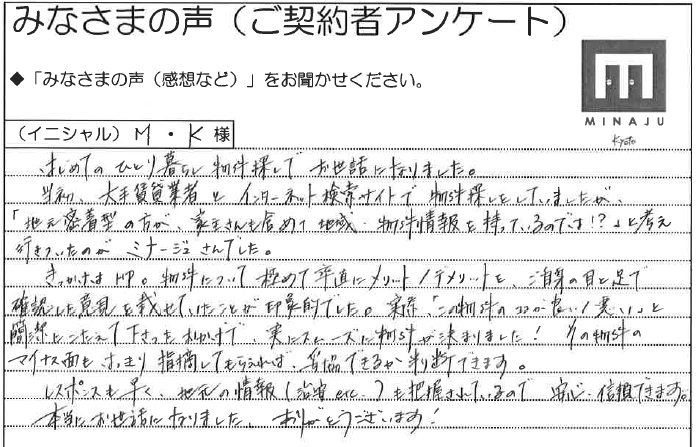 みなさまの声（ご契約者アンケート）
◆「みなさまの声（感想など）」をお聞かせください。
MINAJU
Kyoto
（イニシャル）M・K様
はじめてのひとり暮らし物件探しでお世話になりました。
当初、大手賃貸業者とインターネット検索サイトで物件探しをしていましたが、
「地元密着型の方が、家主さんも含めて地域・物件情報を持っているのでは!?」と考え
行きついたのがミナージュさんでした。
きっかけはHP。物件について極めて率直にメリット/デメリットを、ご自身の目と足で
確認した意見を載せていたことが印象的でした。実際、「この物件のココが良い/悪い」と
簡潔にこたえて下さったおかげで、実にスムーズに物件が決まりました！その物件の
マイナス面もはっきり指摘してもらえれば、妥協できるか判断できます。
レスポンスも早く、地元の情報（治安etc.）も把握されているので安心・信頼できます。
本当にお世話になりました。ありがとうございます！